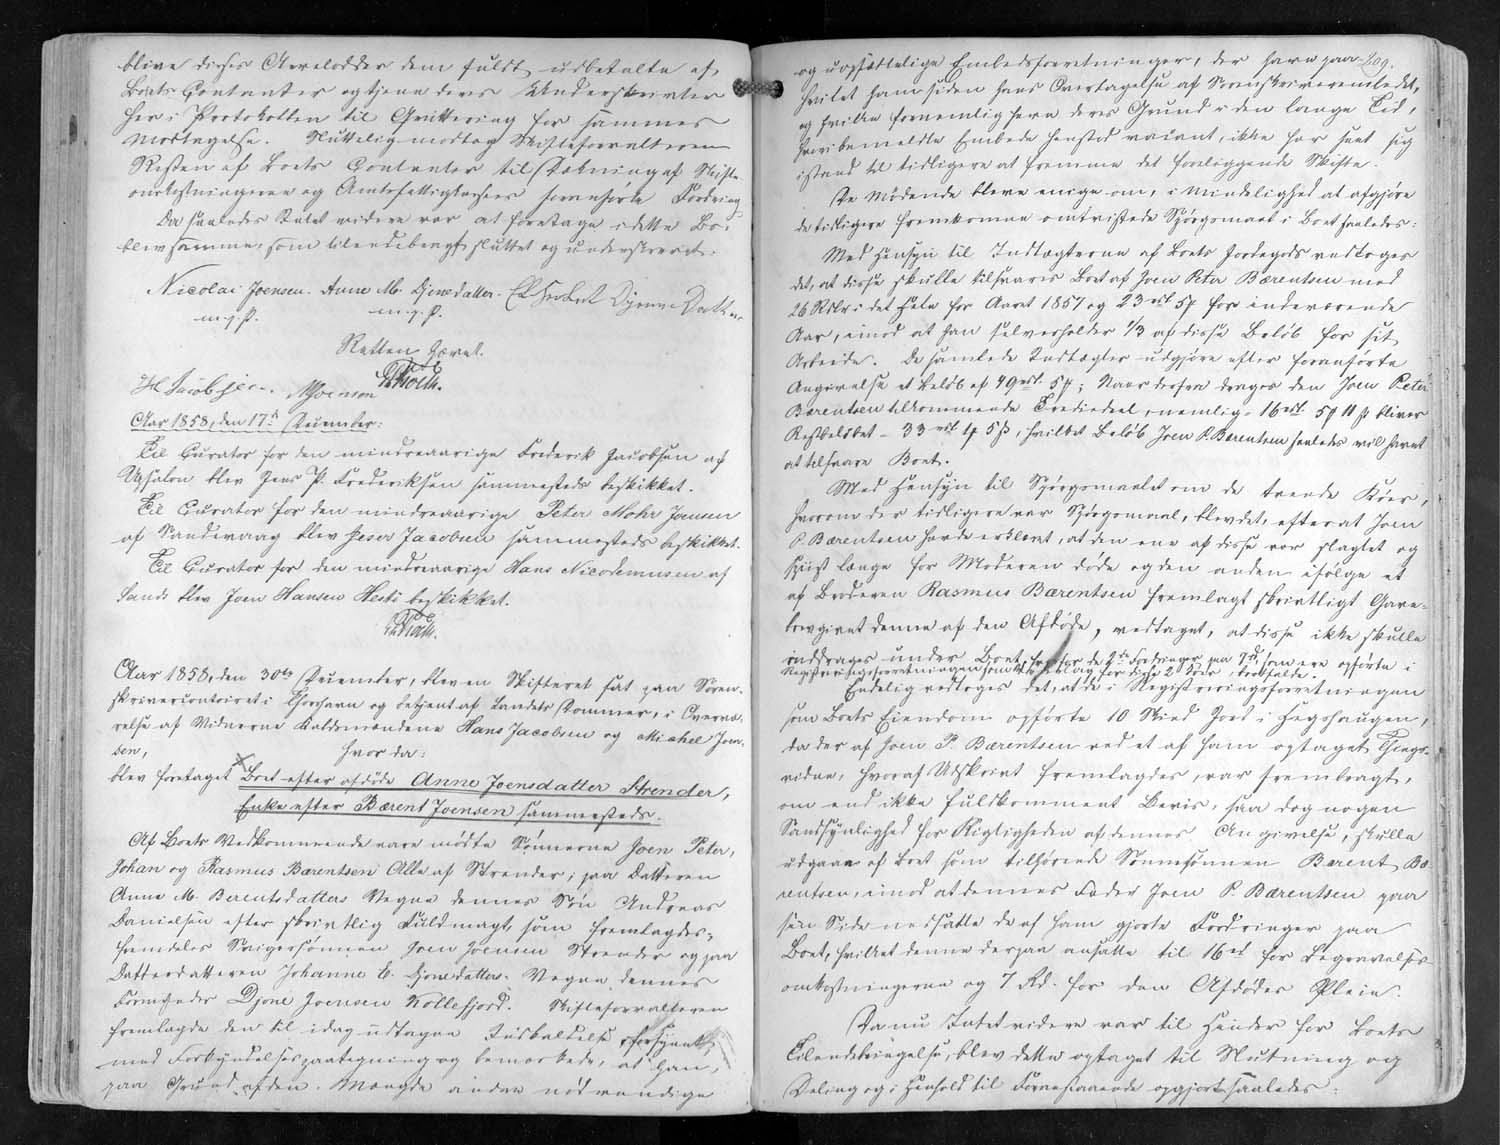 blive disses Arvelodder dem fuldt udbetalte af
Boets Contanter og tjene deres Underskrivter
her i Protokollen til Qvittering for sammes
Modtagelse. Sluttelig modtog Skifteforvalteren
Resten af Boets Contanter til Dækning af Skifte-
omkostningerne og Amtsfattigkassens foranførte Fordring.
Da saaledes Intet videre var at foretage i dette Bo,
blev samme, som tilendebragt, sluttet og underskrevet.
Nicolai Joensen. Anne M. Djonedatter. Djonne Datter
m. f. P. m. f. P.
Retten hævet.
H Jacobsen. MJoensen HMüller
Aar 1858, den 17de December:
Til Curator for den mindreaarige Frederik Jacobsen af
Upsalon blev Jens P. Frederiksen sammesteds beskikket.
Til Curator for den mindreaarige Peter Mohr Jensen
af Sandevaag blev Jacobsen sammesteds beskikket.
Til Curator for den mindreaarige Hans Nicodemussen af
Sand blev Joen Hansen Hestø beskikket.
Aar 1858, den 30te December, blev en Skifteret sat paa Soren-
skrivercontoiret i Thorshavn og betjent af Landets Dommer, i Overvæ-
relse af Vidnerne Kaldsmændene Hans Jacobsen og Michel Joen-
sen, hvor da:
blev foretaget Boet efter afdøde Anne Joensdatter Strender,
Enke efter Bærent Joensen sammesteds.
Af Boets Vedkommende vare mødte Sønnerne Joen Peter,
Johan og Rasmus Bærentsen Alle af Strender; paa Datteren
Anne M. Berentsdatters Vegne dennes Søn Andreas
Danielsen efter skrivtlig Fuldmagt, som fremlagdes;
Svigersønnen Joen Joensen Strender og paa
Datterdatteren Johanne E. Djonedatters Vegne dennes
Formynder Djone Joensen Kollefjord. Skifteforvalteren
fremlagde den til idag udtagne Indkaldelse forsynet
med Forkyndelsespaategning og bemærkede, at han,
paa Grund af den Mængde andre nødvendige
209.
og uopsættelige Embedsforretninger, der have paa-
hvilet ham siden hans Overtagelse af Sorenskriverembedet,
og hvilke fornemlig have deres Grund i den lange Tid,
hvori bemeldte Embede henstod vacant, ikke har seet sig
istand til tidligere at fremme det foreliggende Skifte.
De Mødende bleve enige om, i Mindelighed at afgjøre
de tidligere fremkomne omtvistede Spørgsmaal i Boet saaledes:
Med Hensyn til Indtægterne af Boets Jordegods vedtoges
det, at disse skulle tilsvares Boet af Joen Peter Bærentsen med
26 Rd i det Hele for Aaret 1857 og 23 rd 5 p for indeværende
Aar, imod at han selv beholder 1/3 af disse Beløb for sit
Arbeide. De samlede Indtægter udgjøre efter foranførte
Angivelse et Beløb af 49 rd. 5 p; Naar derfra drages den Joen Peter
Bærentsen tilkommende Trediedeel, nemlig 16 rd. 5 p 11 s bliver
Restbeløbet 33 rd. 4 p 5 s, hvilket Beløb Joen P. Bærentsen saaledes vil have
at tilsvare Boet.
Med Hensyn til Spørgsmaalet om de trende Køer,
hvorom der tidligere var Spørgsmaal, blev det, efterat Joen
P. Bærentsen havde erklæret, at den ene af disse var slagtet og
spiist længe før Moderen døde og den anden ifølge et
af Broderen Rasmus Bærentsen fremlagt skrivtligt Gave-
brev givet denne af den Afdøde, vedtaget, at disse ikke skulle
inddrages under Boet, for de 2de Fordringer paa 7 rd., som ere opførte i
Registreringsforretningen for disse 2 Køer, bortfalde.
Endelig vedtoges det, at de i Registreringsforretningen
som Boets Eiendom opførte 10 Skind Jord i Høgshaugen,
da der af Joen P. Bærentsen ved et af ham optaget Things-
vidne, hvoraf Udskrivt fremlagdes, var frembragt,
om end ikke fuldkomment Beviis, saa dog nogen
Sandsynlighed for Rigtigheden af dennes Angivelse, skulle
udgaae af Boet som tilhørende Sønnesønnen Bærent Bæ-
rentsen, imod at dennes Fader Joen P. Bærentsen paa
sin Side nedsatte de af ham gjorte Fordringer paa
Boet, hvilket denne derpaa ansatte til 16 rd for Begravelses-
omkostningerne og 7 Rd. for den Afdødes Pleie.
Da nu Intet videre var til Hinder for Boets
Tilendebringelse, blev dette optaget til Slutning og
Deling og i Henhold til Foranstaaende opgjort saaledes: